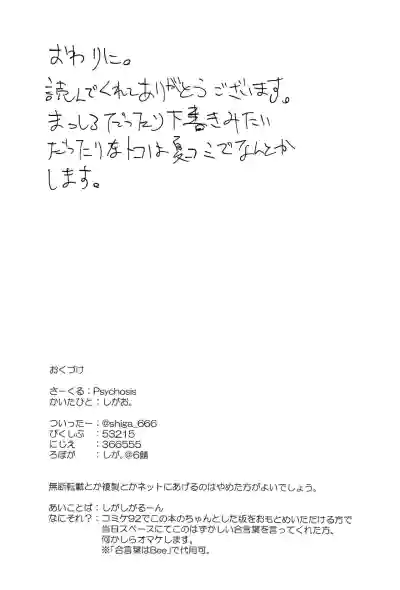 おわりに。
読んでくれてありがとうございます。
まっしろだったり下書きみたい
だったりなトコは夏コミでなんとか
します。
おくづけ
さーくる：Psychosis
かいたひと：しがお。
ついったー：@shiga_666
ぴくしぶ　：53215
にじえ　　：366555
ろぼが　　：しが。@6鯖
無断転載とか複製とかネットにあげるのはやめた方がよいでしょう。
あいことば：しがしがるーん
なにそれ？：コミケ92でこの本のちゃんとした版をおもとめいただける方で
当日スペースにてこのはずかしい合言葉を言ってくれた方、
何かしらオマケします。
※「合言葉はBee」で代用可。